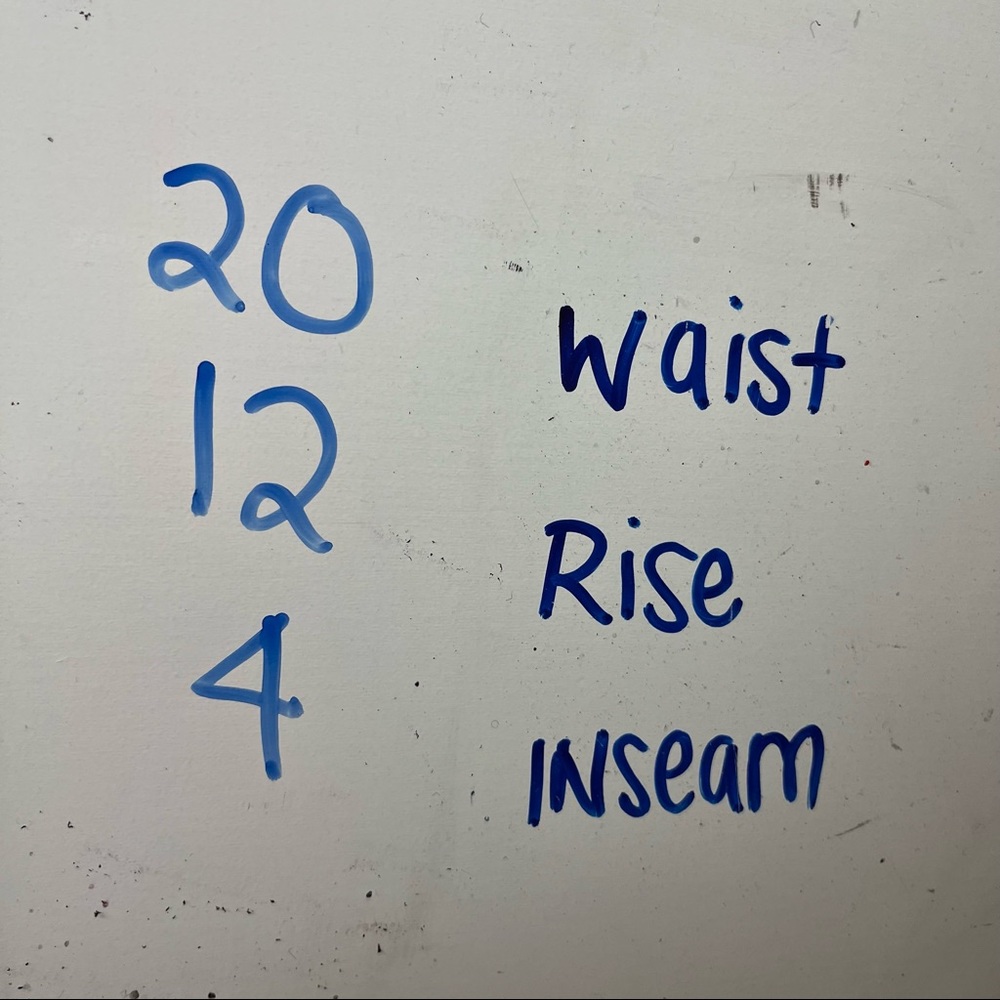 20
Waist
12
Rise
4
INseam